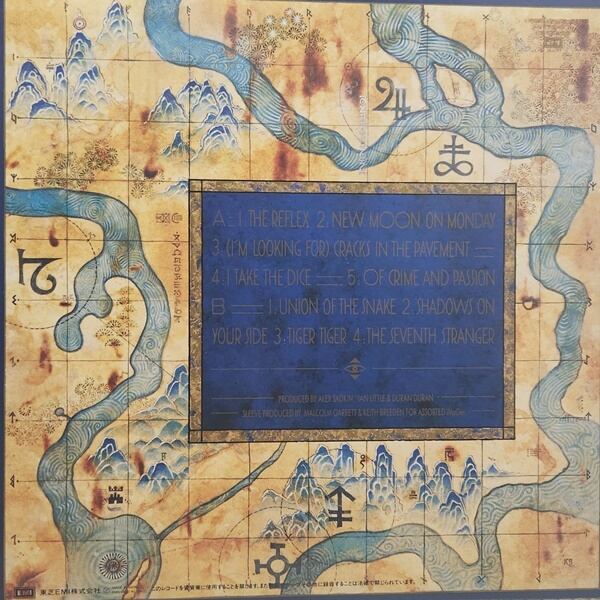 A 1. THE REFLEX 2. NEW MOON ON MONDAY
3. (I'M LOOKING FOR) CRACKS IN THE PAVEMENT
4. I TAKE THE DICE 5. OF CRIME AND PASSION
B 1. UNION OF THE SNAKE 2. SHADOWS ON
YOUR SIDE 3. TIGER TIGER 4. THE SEVENTH STRANGER
PRODUCED BY ALEX SADKIN, IAN LITTLE & DURAN DURAN
SLEEVE PRODUCED BY MALCOLM GARRETT & KEITH BREEDEN FOR ASSORTED
東芝EMI株式会社 このレコードを賃貸業に使用することを禁じます。また 録音することは法律で禁じられています。